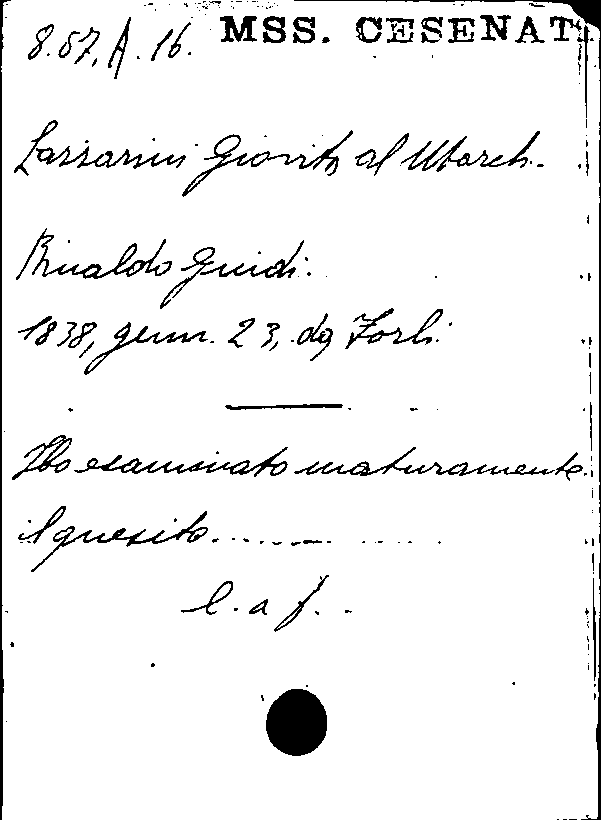 8.57.A.16. MSS. CESENAT.
Lazzarini Giovita al March.
Rinaldo Guidi.
1838, genn. 23, da Forlì.
Ho esaminato maturamente
il quesito............
l. a f.